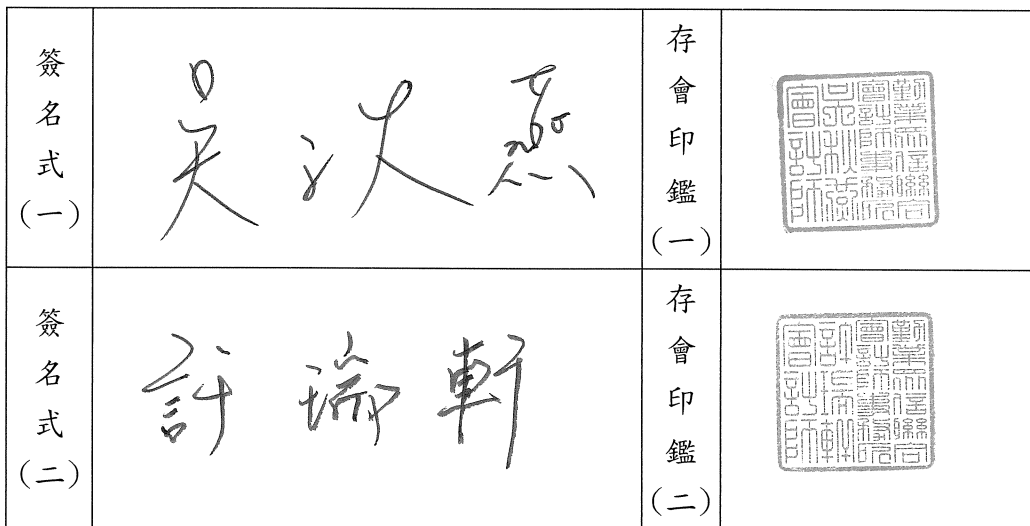 簽名式(一)
吳秋燕
存會印鑑(一)
勤業眾信聯合
會計師事務所
吳秋燕
會計師
簽名式(二)
許瑞軒
存會印鑑(二)
勤業眾信聯合
會計師事務所
許瑞軒
會計師